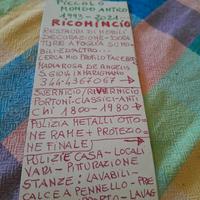 PICCOLO
MONDO ANTICO
1993 - 2021
RICOMINCIO
RESTAURI DI MOBILI
DECORAZIONE - DORA
TURE A FOGLIA SU MO
BILI E D'ALTRO...
CERCA MIO PROFILO FACEBO
MARIA ROSA DE ANGELIS
S. GIOV. IN MARIGNANO
344-4367067 →
SVERNICIO/RIVERNICIO
PORTONI-CLASSICI-ANTI
CHI 1800-1980 →
PULIZIA METALLI OTTO
NE RAME + PROTEZIO
NE FINALE
PULIZIE CASA - LOCALI
VARI - PITTURAZIONE
STANZE: LAVABILI -
CALCE A PENNELLO - PRE
LAVAG